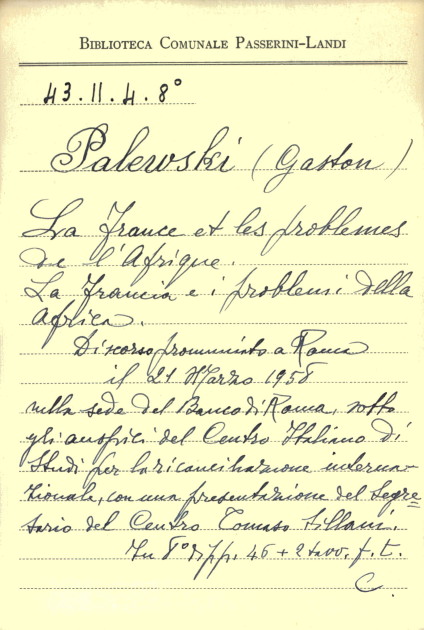 BIBLIOTECA COMUNALE PASSERINI-LANDI
43.II.4.8°
Palewski (Gaston)
La France et les problemes
de l'Afrique.
La Francia e i problemi della
Africa.
Discorso pronunciato a Roma
il 21 Marzo 1958
nella sede del Banco di Roma, sotto
gli auspici del Centro Italiano di
Studi per la riconciliazione interna-
zionale, con una presentazione del Segre=
tario del Centro Tomaso Sillani.
In 8° di pp. 46 + 2 tavv. f. t.
C